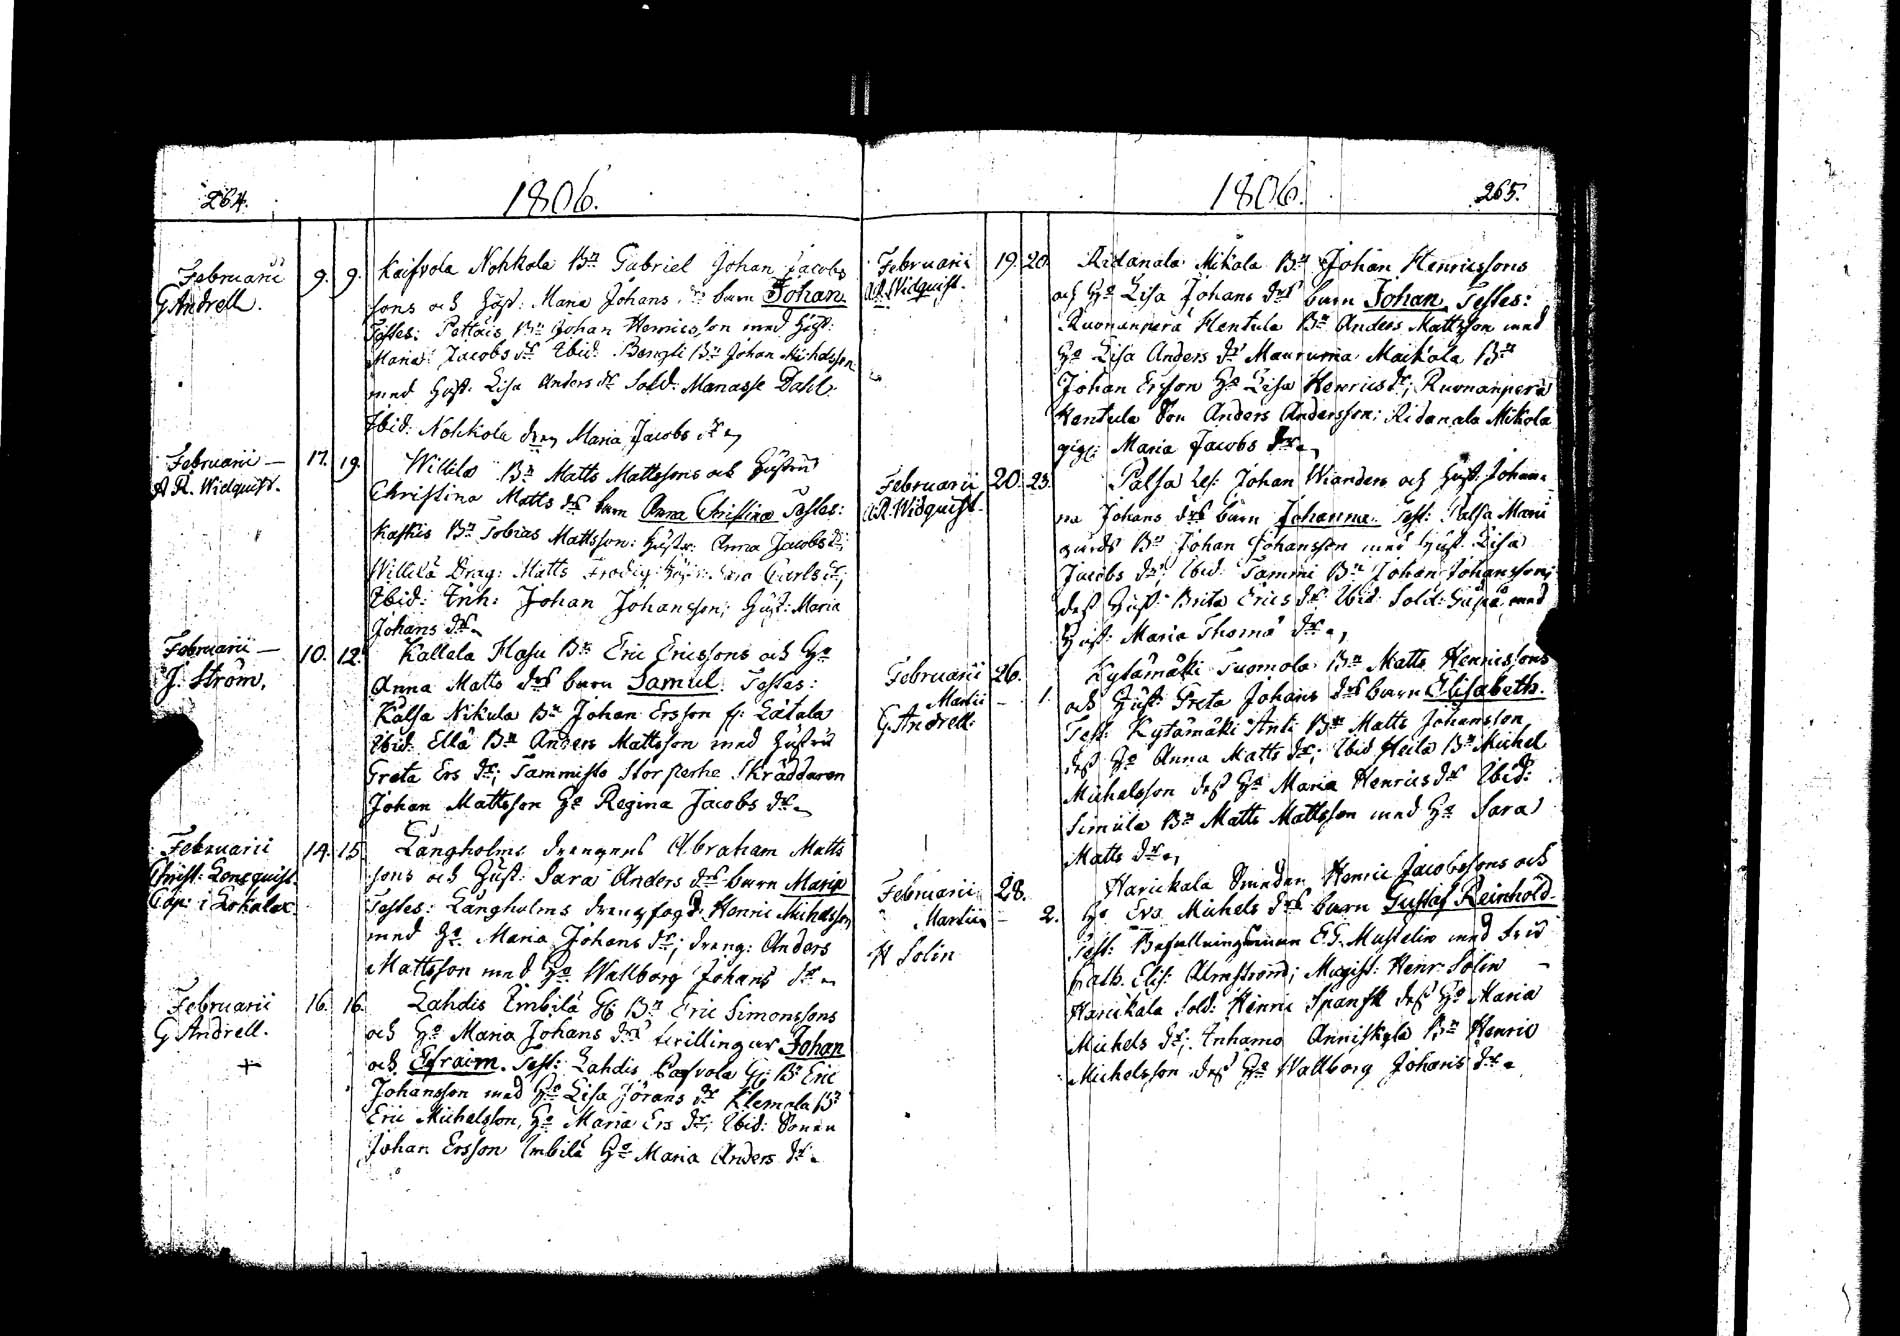 264.
1806.
Februarii 9. 9. Kaifvola Nohkola Bn Gabriel Johan Jacobs
G Andrell. sons och Hust: Maria Johans dr barn Johan
Testes: Pottais Bn Johan Henricsson med Hust:
Maria Jacobs dr Ibid: Bengli Bn Johan Michelsson
med Hust. Lisa Anders dr Sold: Manasse Dahl
Ibid: Nohkola dreng Maria Jacobs dr
Februarii — 17. 19. Willilä Bn Matts Mattssons och Hustru
A R. Widquist. Christina Matts drs barn Anna Christina Testes:
Kaskis Bn Tobias Mattsson: Hustr: Anna Jacobs dr;
Willilä Drag: Matts Frodig Carls dr;
Ibid: Inh: Johan Johansson; Hust: Maria
Johans dr
Februarii — 10. 12. Kallela Hasu Bn Eric Ericssons och Ho
J. Ström. Anna Matts drs barn Samul. Testes:
Kalsa Nikula Bn Johan Ersson f: Laitala
Ibid. Ellä Bn Anders Mattsson med Hustru
Greta Ers dr; Tammisto Storperhe Skräddaren
Johan Mattsson Ho Regina Jacobs dr
Februarii 14. 15. Långholms drengens Abraham Matts
Christ: Lönequist. sons och Hust: Sara Anders drs barn Maria
Cap: i Lokalax. Testes: Långholms drengfogd: Henric Michelsson
med Ho Maria Johans dr; dreng: Anders
Mattsson med Ho Wallborg Johans dr
Februarii 16. 16. Lahdis Imbilä Bn Eric Simonssons
G Andrell. och Ho Maria Johans drs tvillingar Johan
+ och Efraim. Test: Lahdis Bn Eric
Johansson med Ho Lisa Jörans dr Klemola Bn
Eric Michelsson, Ho Maria Ers dr; Ibid: Sonen
Johan Ersson Imbilä Ho Maria Anders dr
1806.
265.
Februarii 19. 20. Ridanala Mikola Bn Johan Henricssons
A.R. Widquist. och Ho Lisa Johans drs barn Johan Testes:
Ruonanperä Hentula Bn Anders Mattsson med
Ho Lisa Anders dr Mauruma Maikola Bn
Johan Ersson Ho Lisa Henrics dr; Ruonanperä
Hentula Son Anders Andersson: Ridanala Mikola
pig: Maria Jacobs dr
Februarii 20. 23. Palsa Johan Wianders och Hust: Johan-
A.R. Widquist. na Johans drs barn Johanna. Test: Palsa Mari
gårds Bn Johan Johansson med Hust. Lisa
Jacobs dr: Ibid: Tammi Bn Johan Johansson;
dess Hust: Brita Erics dr Ibid: Sold: med
Hust: Maria Thoma dr
Februarii 26. Kytämäki Tuomola Bn Matts Henricssons
Martii — 1. och Hust: Greta Johans drs barn Elisabeth.
G Andrell. Test: Kytämäki Anti Bn Matts Johansson
dess Ho Anna Matts dr; Ibid Heila Bn Michel
Michelsson dess Ho Maria Henrics dr Ibid:
Simula Bn Matts Mattsson med Ho Sara
Matts dr
Februarii 28. Harickala Smeden Henric Jacobssons och
Martii — 2. Ho Eva Michels drs barn Gustaf Reinhold
H Solin Test: Befallningsman E.G. Mustelin med Fru
Cath. Elis: Almström; Magist: Henr. Solin
Harickala Sold: Henric Spansk dess Ho Maria
Michels dr; Inhamo Anniskyla Bn Henric
Michelsson dess Ho Wallborg Johans dr